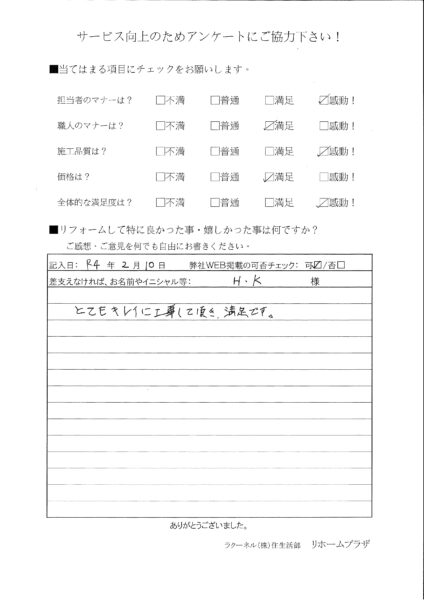 サービス向上のためアンケートにご協力下さい！
■当てはまる項目にチェックをお願いします。
担当者のマナーは？ □不満 □普通 □満足 ☑感動！
職人のマナーは？ □不満 □普通 ☑満足 □感動！
施工品質は？ □不満 □普通 □満足 ☑感動！
価格は？ □不満 □普通 ☑満足 □感動！
全体的な満足度は？ □不満 □普通 □満足 ☑感動！
■リフォームして特に良かった事・嬉しかった事は何ですか？
ご感想・ご意見を何でも自由にお書きください・
記入日： R4 年 2 月 10 日 弊社WEB掲載の可否チェック： 可☑/否□
差支えなければ、お名前やイニシャル等： H・K 様
とてもキレイに工事して頂き、満足です。
ありがとうございました。
ラクーネル（株）住生活部 リホームプラザ